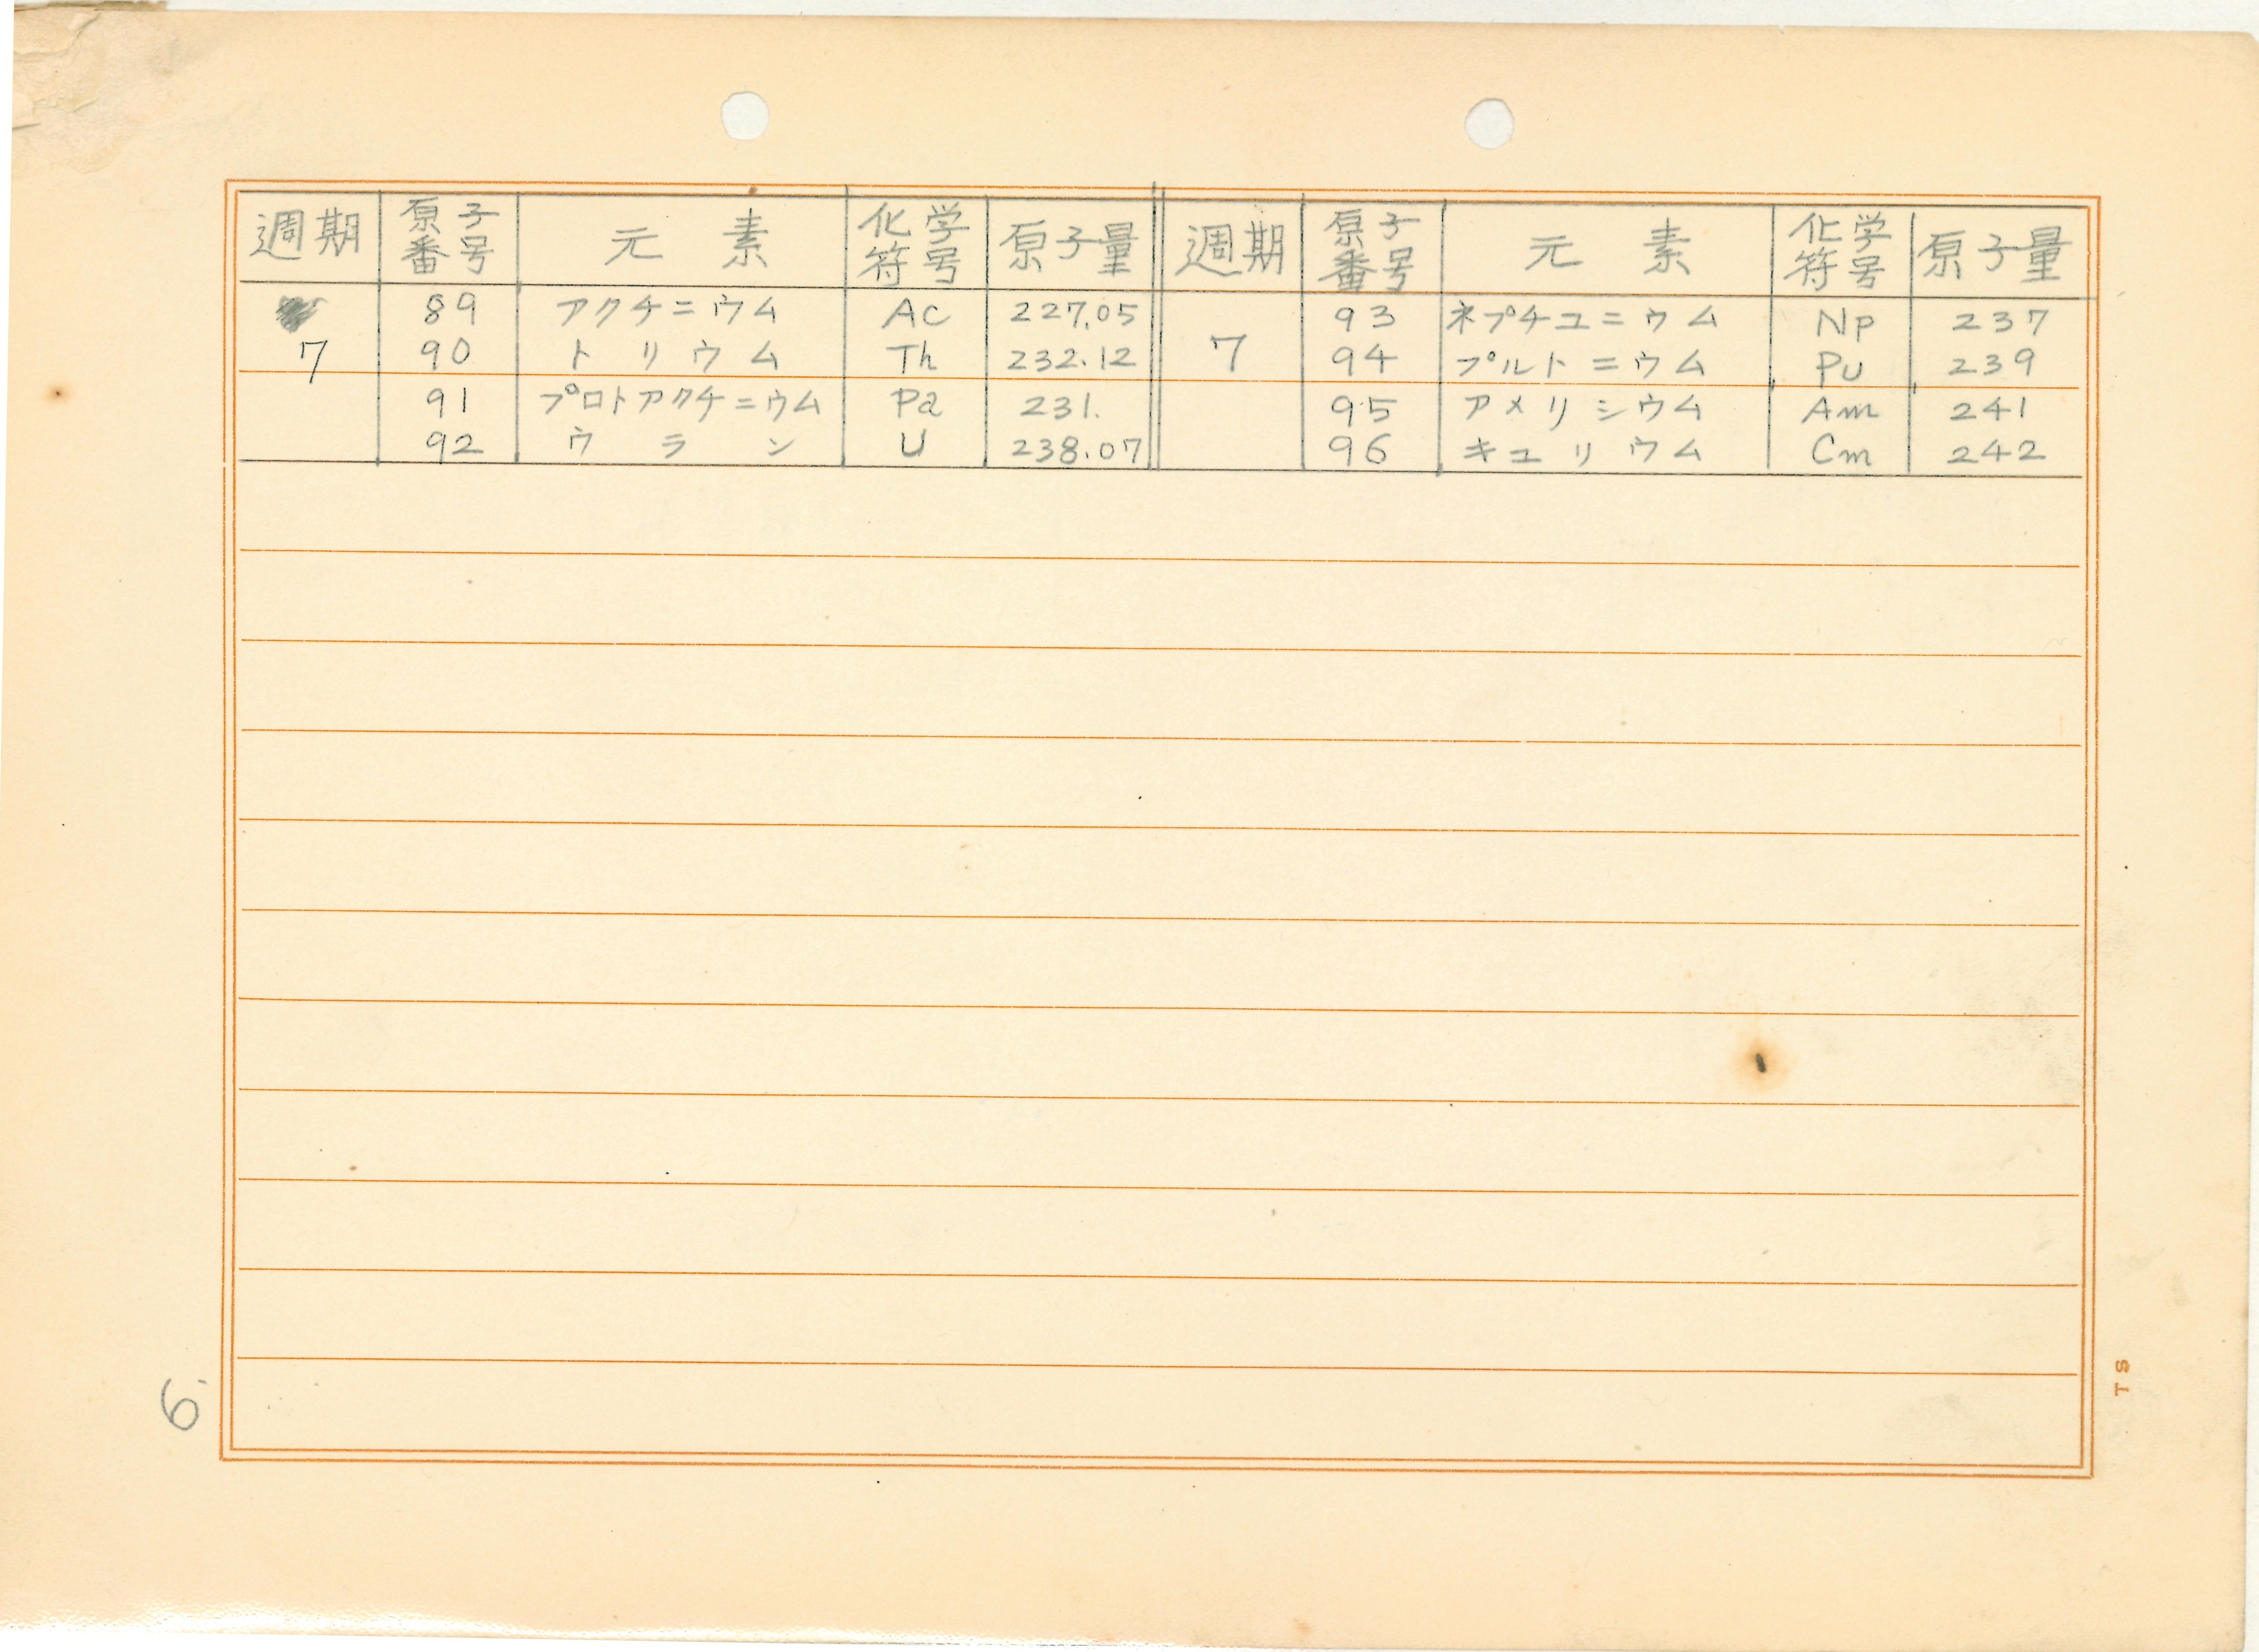 週期 原子番号 元素 化学符号 原子量 週期 原子番号 元素 化学符号 原子量
89 アクチニウム Ac 227.05 93 ネプチユニウム Np 237
7 90 トリウム Th 232.12 7 94 プルトニウム Pu 239
91 プロトアクチニウム Pa 231. 95 アメリシウム Am 241
92 ウラン U 238.07 96 キユリウム Cm 242
6.
TS